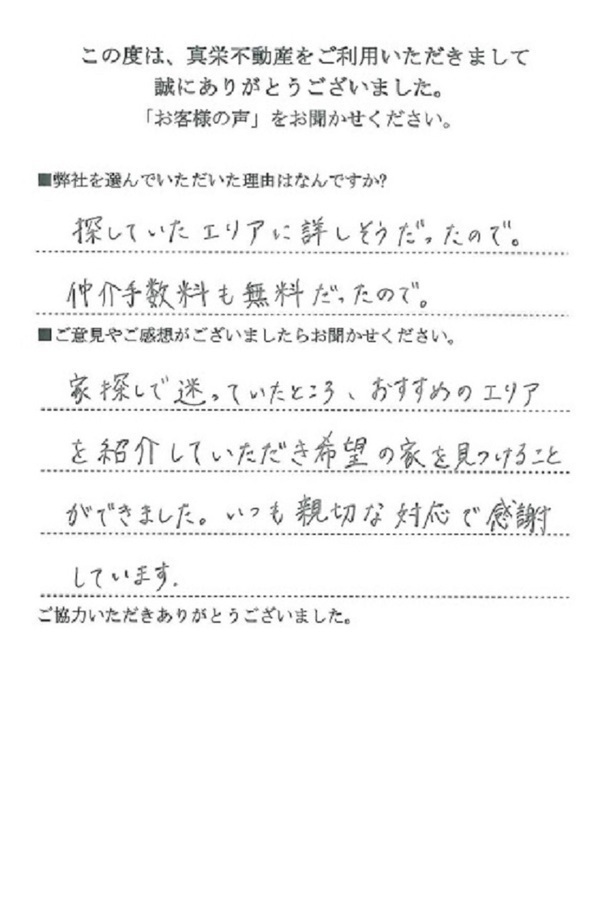 この度は、真栄不動産をご利用いただきまして
誠にありがとうございました。
「お客様の声」をお聞かせください。
■弊社を選んでいただいた理由はなんですか?
探していたエリアに詳しそうだったので。
仲介手数料も無料だったので。
■ご意見やご感想がございましたらお聞かせください。
家探しで迷っていたところ、おすすめのエリア
を紹介していただき希望の家を見つけること
ができました。いつも親切な対応で感謝
しています.
ご協力いただきありがとうございました。